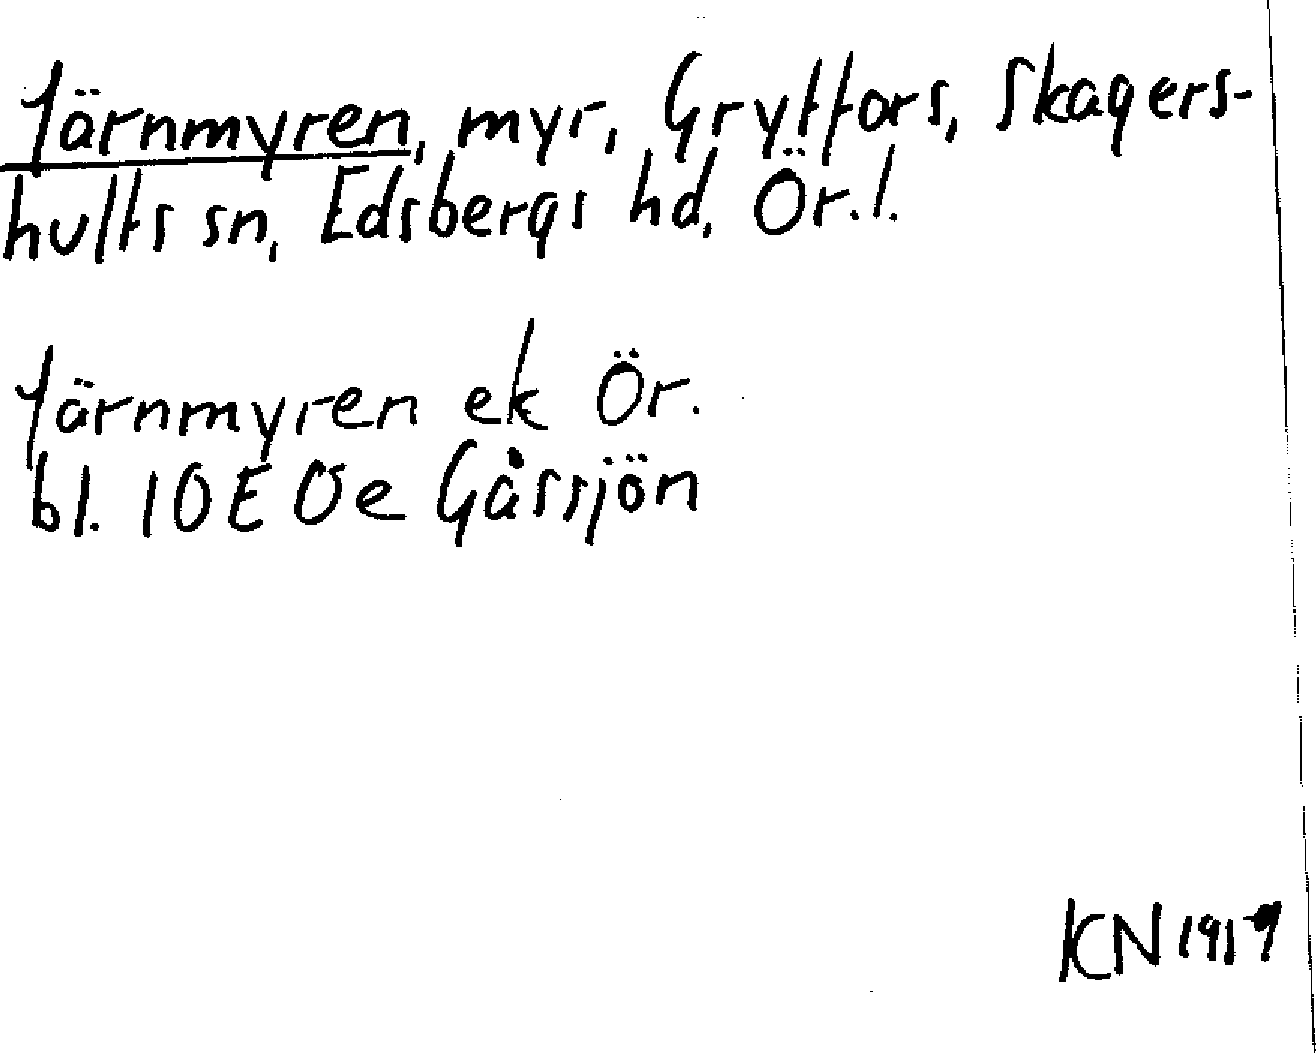 Järnmyren, myr, Grytfors, Skagers-
hults sn, Edsbergs hd, Ör. l.
Järnmyren ek Ör.
bl. 10E 0e Gåssjön
KN 1917